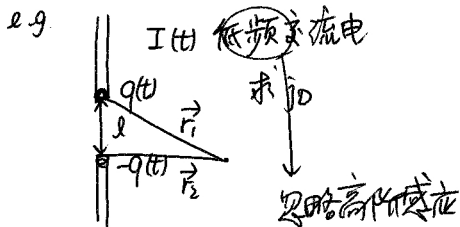 e.g
I(t) 低频交流电
q(t)
求 j_D
l
r⃗₁
-q(t)
r⃗₂
忽略高阶感应